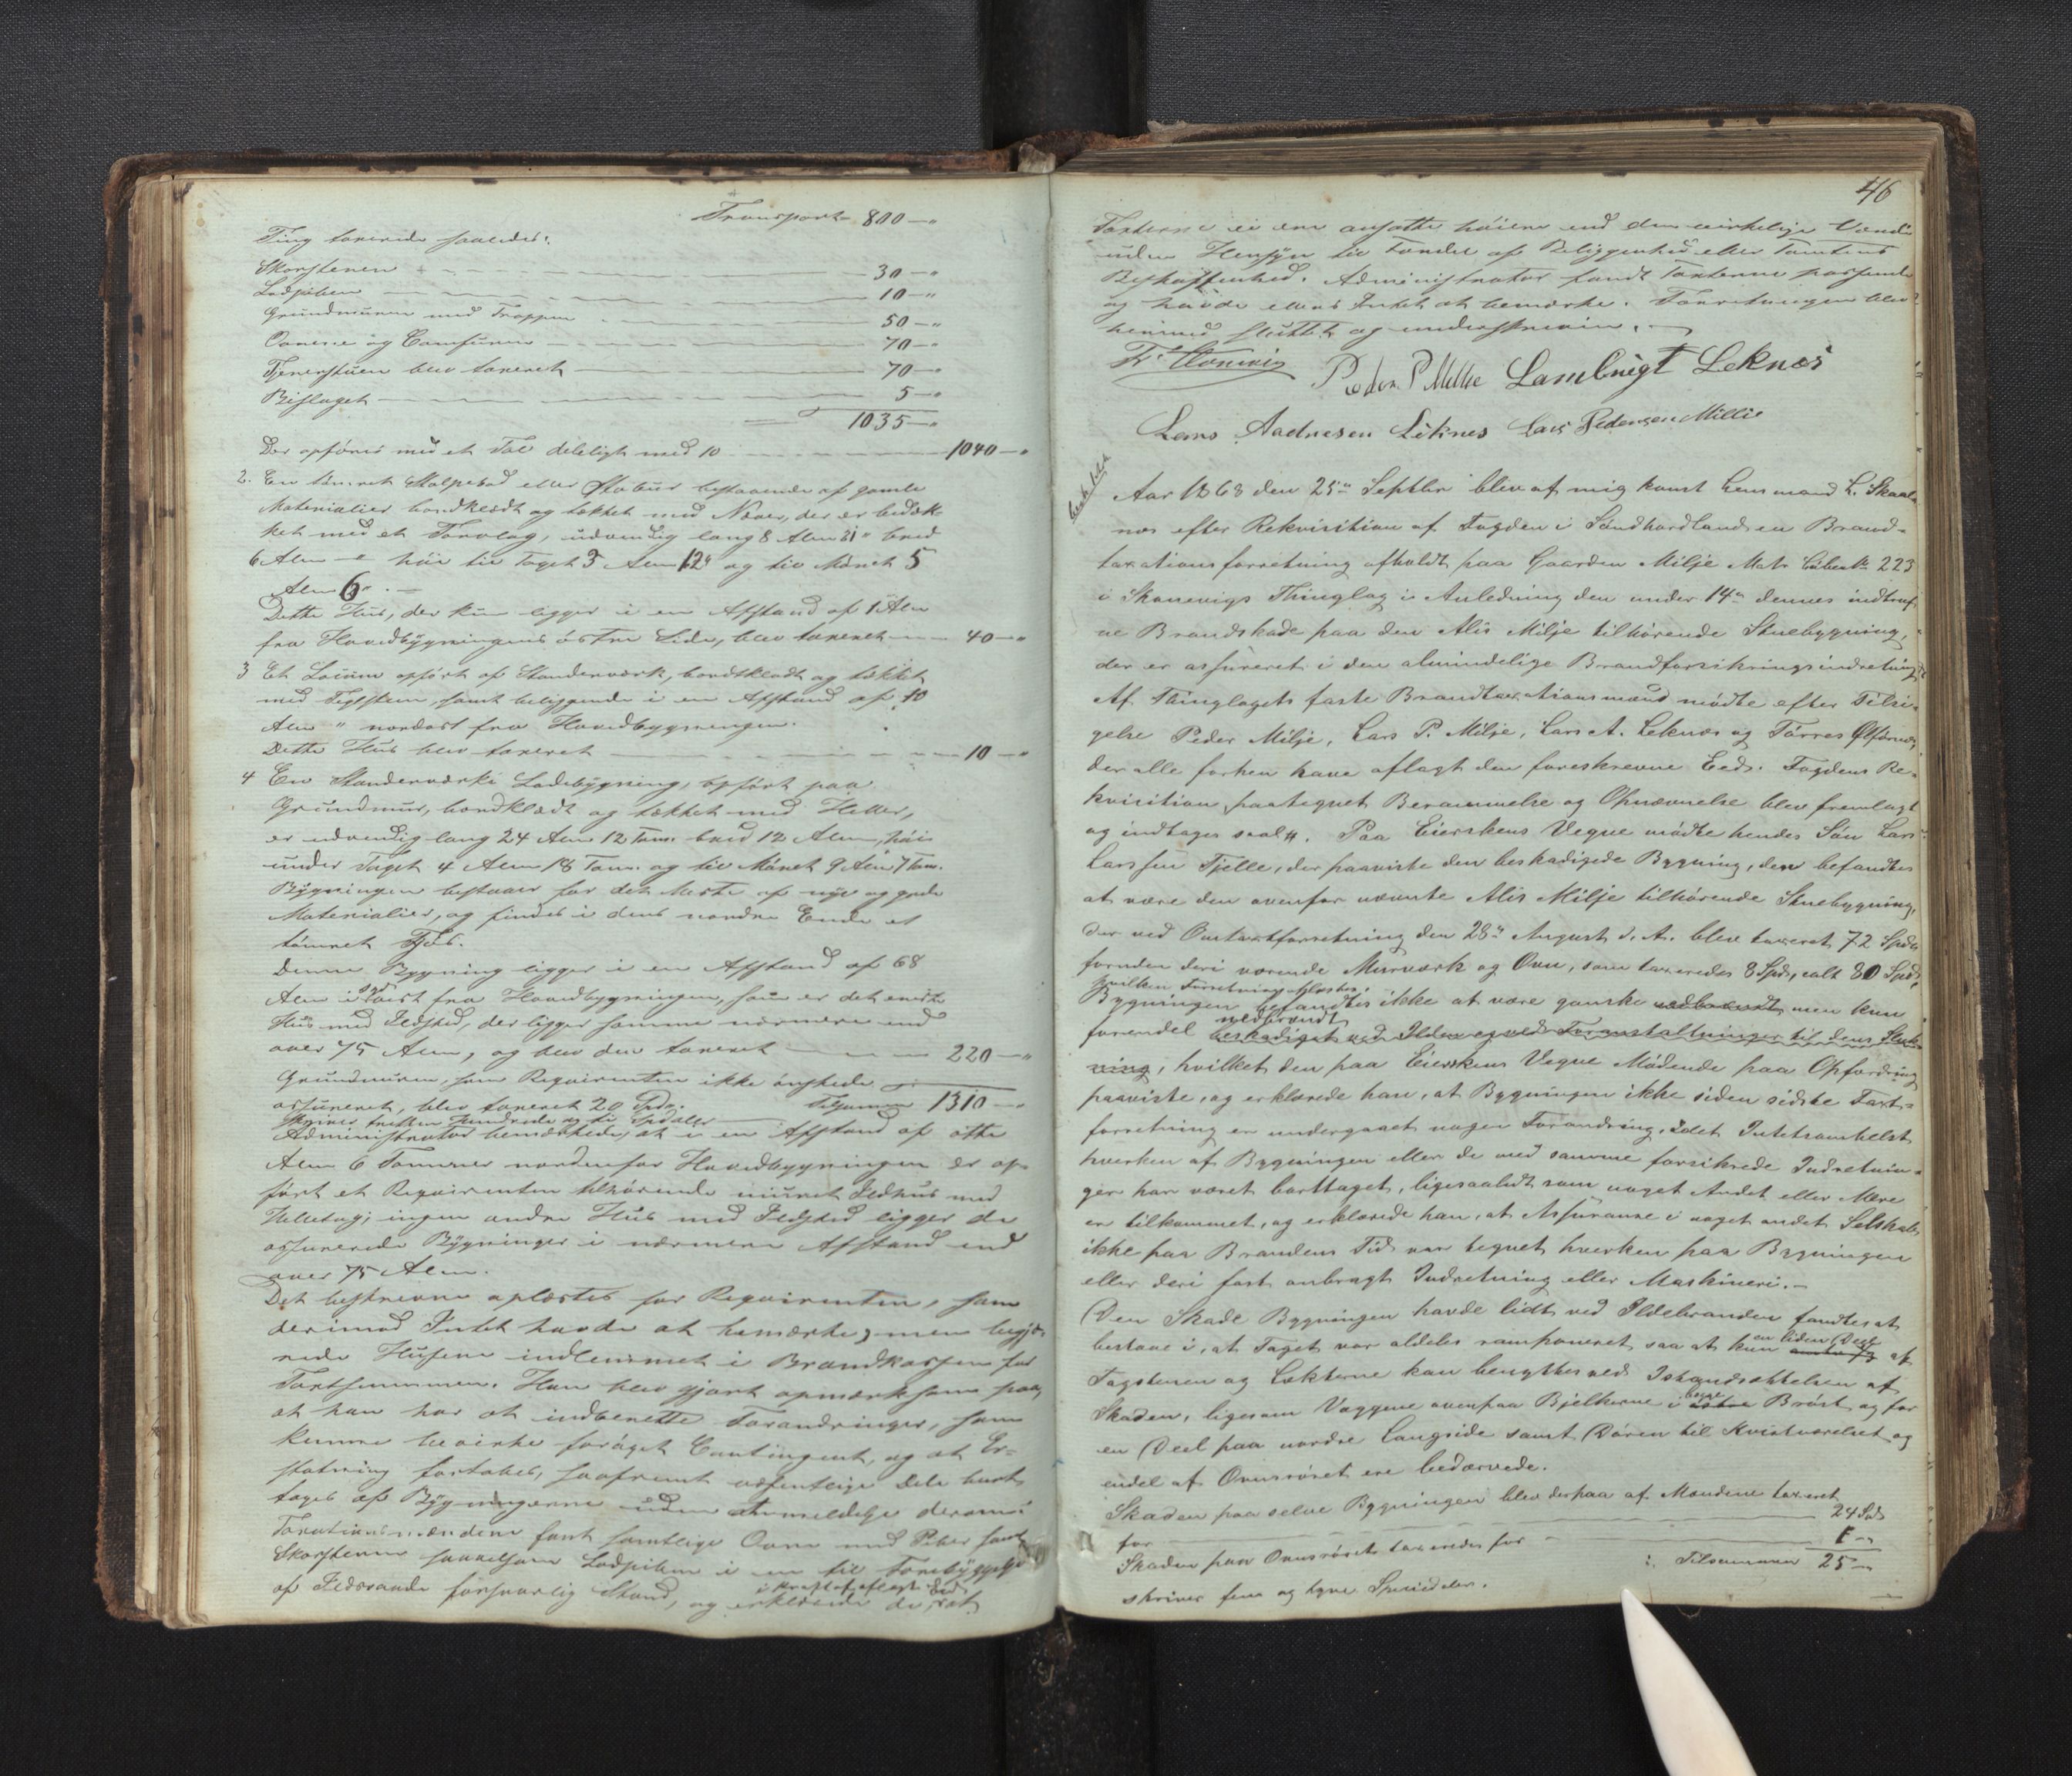 Transport 800 — "
Ting taxerede saaledes:
Skorstenen — 30 — "
Lodpiben — 10 — "
Grundmuren med Trappen — 50 — "
Ovnene og Comfuren — 70 — "
Tjenerstuen blev taxeret — 70 — "
Bislaget — 5 — "
1035 — "
Der opføres med et Tal deleligt med 10 — 1040 — "
2. En tømret Stolpebod eller Stabur bestaaende af gamle
Materialier bordklædt og tækket med Næver, der er bedæk-
ket med et Torvlag, udvendig lang 8 Alen 21" bred
6 Alen — høi til Taget 3 Alen 12" og til Mønet 5
Alen 6". —
Dette Huus, der kun ligger i en Afstand af 1 Alen
fra Hovedbygningens østre Side, blev taxeret — 40 — "
3 Et Locum opført af Standerværk, bordklædt og tækket
med Teglsteen, samt beliggende i en Afstand af 40
Alen " nordost fra Hovedbygningen.
Dette Hus blev taxeret — 10 — "
4 En Standerværks Ladebygning, opført paa
Grundmur, bordklædt og tækket med Heller,
er udvendig lang 24 Alen 12 Tom. bred 12 Alen, høi
under Taget 4 Alen 18 Tom. og til Mønet 9 Alen 7 Tom.
Bygningen bestaaer for det Meste af nye og gode
Materialier, og findes i dens nordre Ende et
tømret Fjøs.
Denne Bygning ligger i en Afstand af 68
Alen i sydvest fra Hovedbygningen, som er det eneste
Hus med Ildsted, der ligger samme nærmere end
over 75 Alen, og blev den taxeret — 220 — "
Grundmuren, som Requirenten ikke ønskede
assureret, blev taxeret 20 Spdr. Tilsammen 1310 — "
skriver tretten Hundrede og ti Spdaler
Administrator bemærkede, at i en Afstand af otte
Alen 6 Tommer nordenfor Hovedbygningen er op-
ført et Requirenten tilhørende muret Ildhus med
Helletag; ingen andre Hus med Ildsted ligger de
assurerede Bygninger i nærmere Afstand end
over 75 Alen.
Det beskrevne oplæstes for Requirenten, som
derimod Intet havde at bemærke, men begjæ-
rede Husene indlemmet i Brandkassen for
Taxtsummen. Han blev gjort opmærksom paa,
at han har at indberette Forandringer, som
kunne bevirke forøget Contingent, og at Er-
statning fortabes, saafremt væsentlige Dele bort-
tages af Bygningerne uden Anmeldelse derom.
Taxationsmændene fant samtlige Ovne med Piber samt
Skorstene saavelsom Lodpiben i en til Forebyggelse
af Ildsvaade forsvarlig Stand, og erklærede de i Kraft af aflagt Eed, at
46
Taxterne ei ere ansatte høiere end den virkelige Værdi
uden Hensyn til Fordel af Beliggenhed eller Tomtens
Beskaffenhed. Administrator fandt Taxterne passende
og havde ellers Intet at bemærke. Forretningen blev
hermed sluttet og underskreven. —
Peder P Milie Lambrigt Leknes
Lars Aadnesen Leknes Lars Pedersen Millie
Aar 1868 den 25de Septbr blev af mig konst Lensmand L. Skaal-
næs efter Rekvisition af Fogden i Søndhordland en Brand-
taxationsforretning afholdt paa Gaarden Milje Matr Løbe No 223
i Skonevigs Thinglag i Anledning den under 14de dennes indtruf-
ne Brandskade paa den Alis Milje tilhørende Stuebygning,
der er assureret i den almindelige Brandforsikringsindretning.
Af Thinglagets faste Brandtaxationsmænd mødte efter Tilsi-
gelse Peder Milje, Lars P. Milje, Lars A. Leknæs og Tørres Ølfernæs,
der alle forhen have aflagt den foreskrevne Eed. Fogdens Re-
kvisition paategnet Berammelse og Opnævnelse blev fremlagt
og indtages saal. Paa Eierskens Vegne mødte hendes Søn Lars
Larssen Tjelle, der paaviste den beskadigede Bygning, den befandtes
at være den ovenfor nævnte Alis Milje tilhørende Stuebygning,
der ved Omtaxtforretning den 28de August d. A. blev taxeret 72 Spdr
foruden deri værende Murværk og Ovn, som taxeredes 8 Spd, ialt 80 Spd,
hvilken Forretning oplæstes.
Bygningen befandtes ikke at være ganske nedbrændt men kun
forendel nedbrændt beskadiget ved Ilden og ved Foranstaltninger til dens Sluk-
ning, hvilket den paa Eierskens Vegne Mødende paa Opfordring
paaviste, og erklærede han, at Bygningen ikke siden sidste Taxt-
forretning er undergaaet nogen Forandring, idet Intetsomhelst
hverken af Bygningen eller de med samme forsikrede Indretnin-
ger har været borttaget, ligesaalidt som noget Andet eller Mere
er tilkommet, og erklærede han, at Assurance i noget andet Selskab
ikke paa Brandens Tid var tegnet hverken paa Bygningen
eller deri fast anbragt Indretning eller Maskineri. —
Den Skade Bygningen havde lidt ved Ildebranden fandtes at
bestaae i, at Taget var aldeles ramponeret saa at kun en liden Deel af
Tagstenen og Lekterne kan benyttes ved Istandsættelsen af
Skaden, ligesom Væggene ovenpaa Bjelkerne i Brøst og for
en Deel paa nordre Langside samt Døren til Kvistværelset og
endel af Ovnsrøret ere bedærvede.
Skaden paa selve Bygningen blev derpaa af Mændene taxeret
for — 24 Spd
Skaden paa Ovnsrøret taxeredes for — 1 — "
Tilsammen 25 — "
skriver fem og tyve Speciedaler.